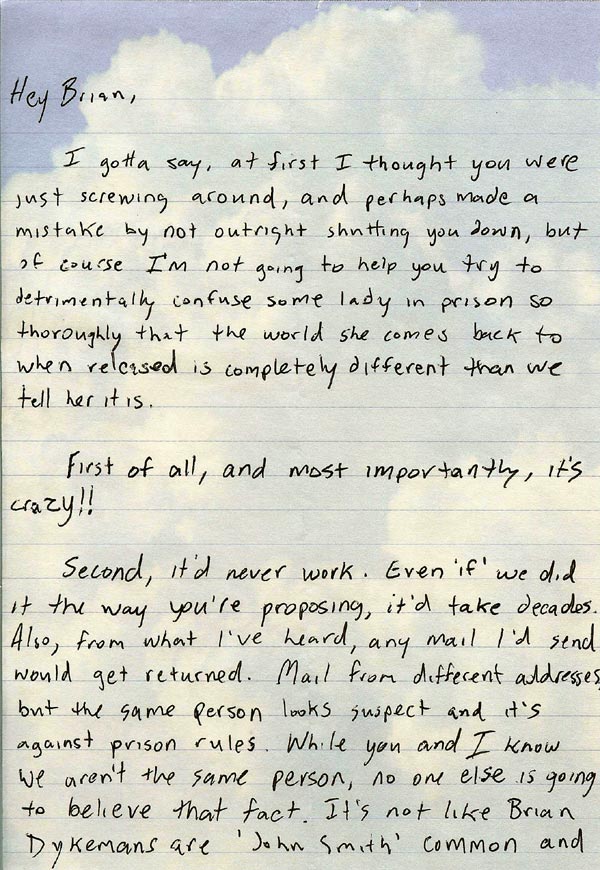 Hey Brian,
I gotta say, at first I thought you were
just screwing around, and perhaps made a
mistake by not outright shutting you down, but
of course I'm not going to help you try to
detrimentally confuse some lady in prison so
thoroughly that the world she comes back to
when released is completely different than we
tell her it is.
First of all, and most importantly, it's
crazy!!
Second, it'd never work. Even 'if' we did
it the way you're proposing, it'd take decades.
Also, from what I've heard, any mail I'd send
would get returned. Mail from different addresses
but the same person looks suspect and it's
against prison rules. While you and I know
we aren't the same person, no one else is going
to believe that fact. It's not like Brian
Dykemans are 'John Smith' common and